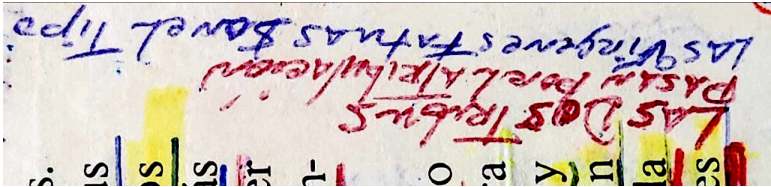 LAS DOS TRIBUS
PASAN POR LA TRIBULACIÓN
LAS Vírgenes Fatuas Son el Tipo
s.
us
os
ias
er
n-
o
ra
y
n
la
es